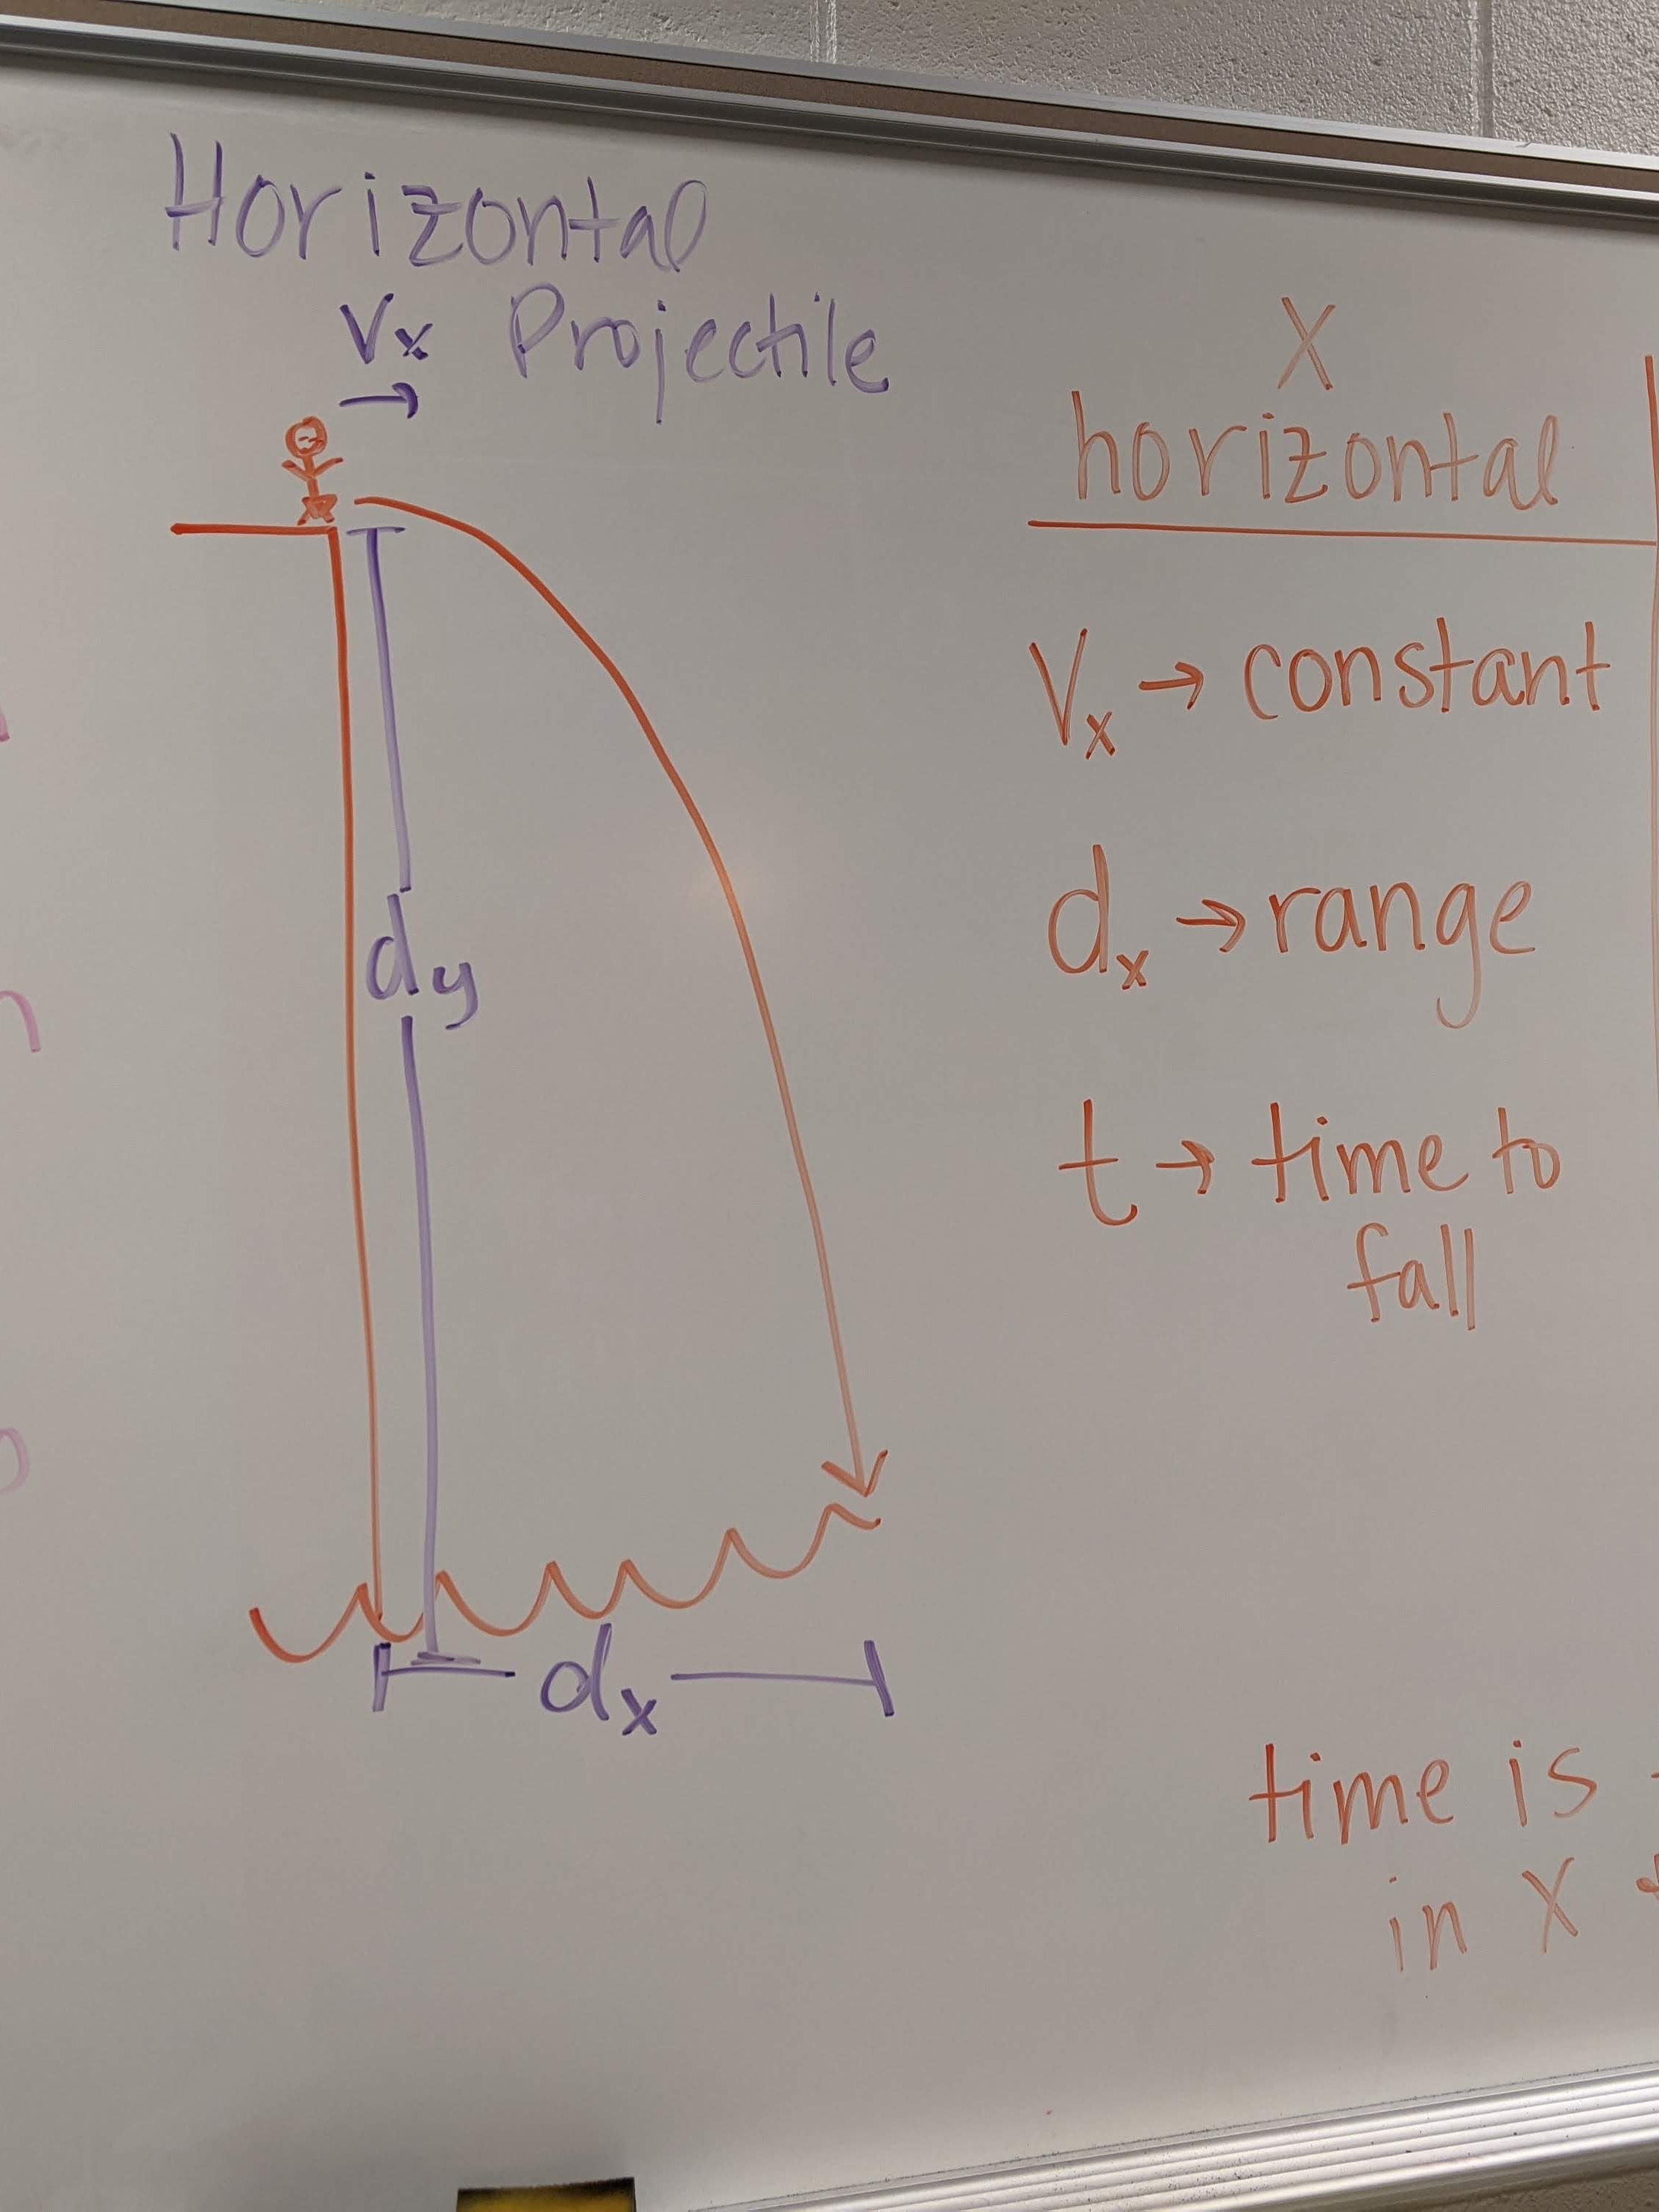 Horizontal
Vx Projectile
dy
dx
X
horizontal
Vx → constant
dx → range
t → time to
fall
time is
in X